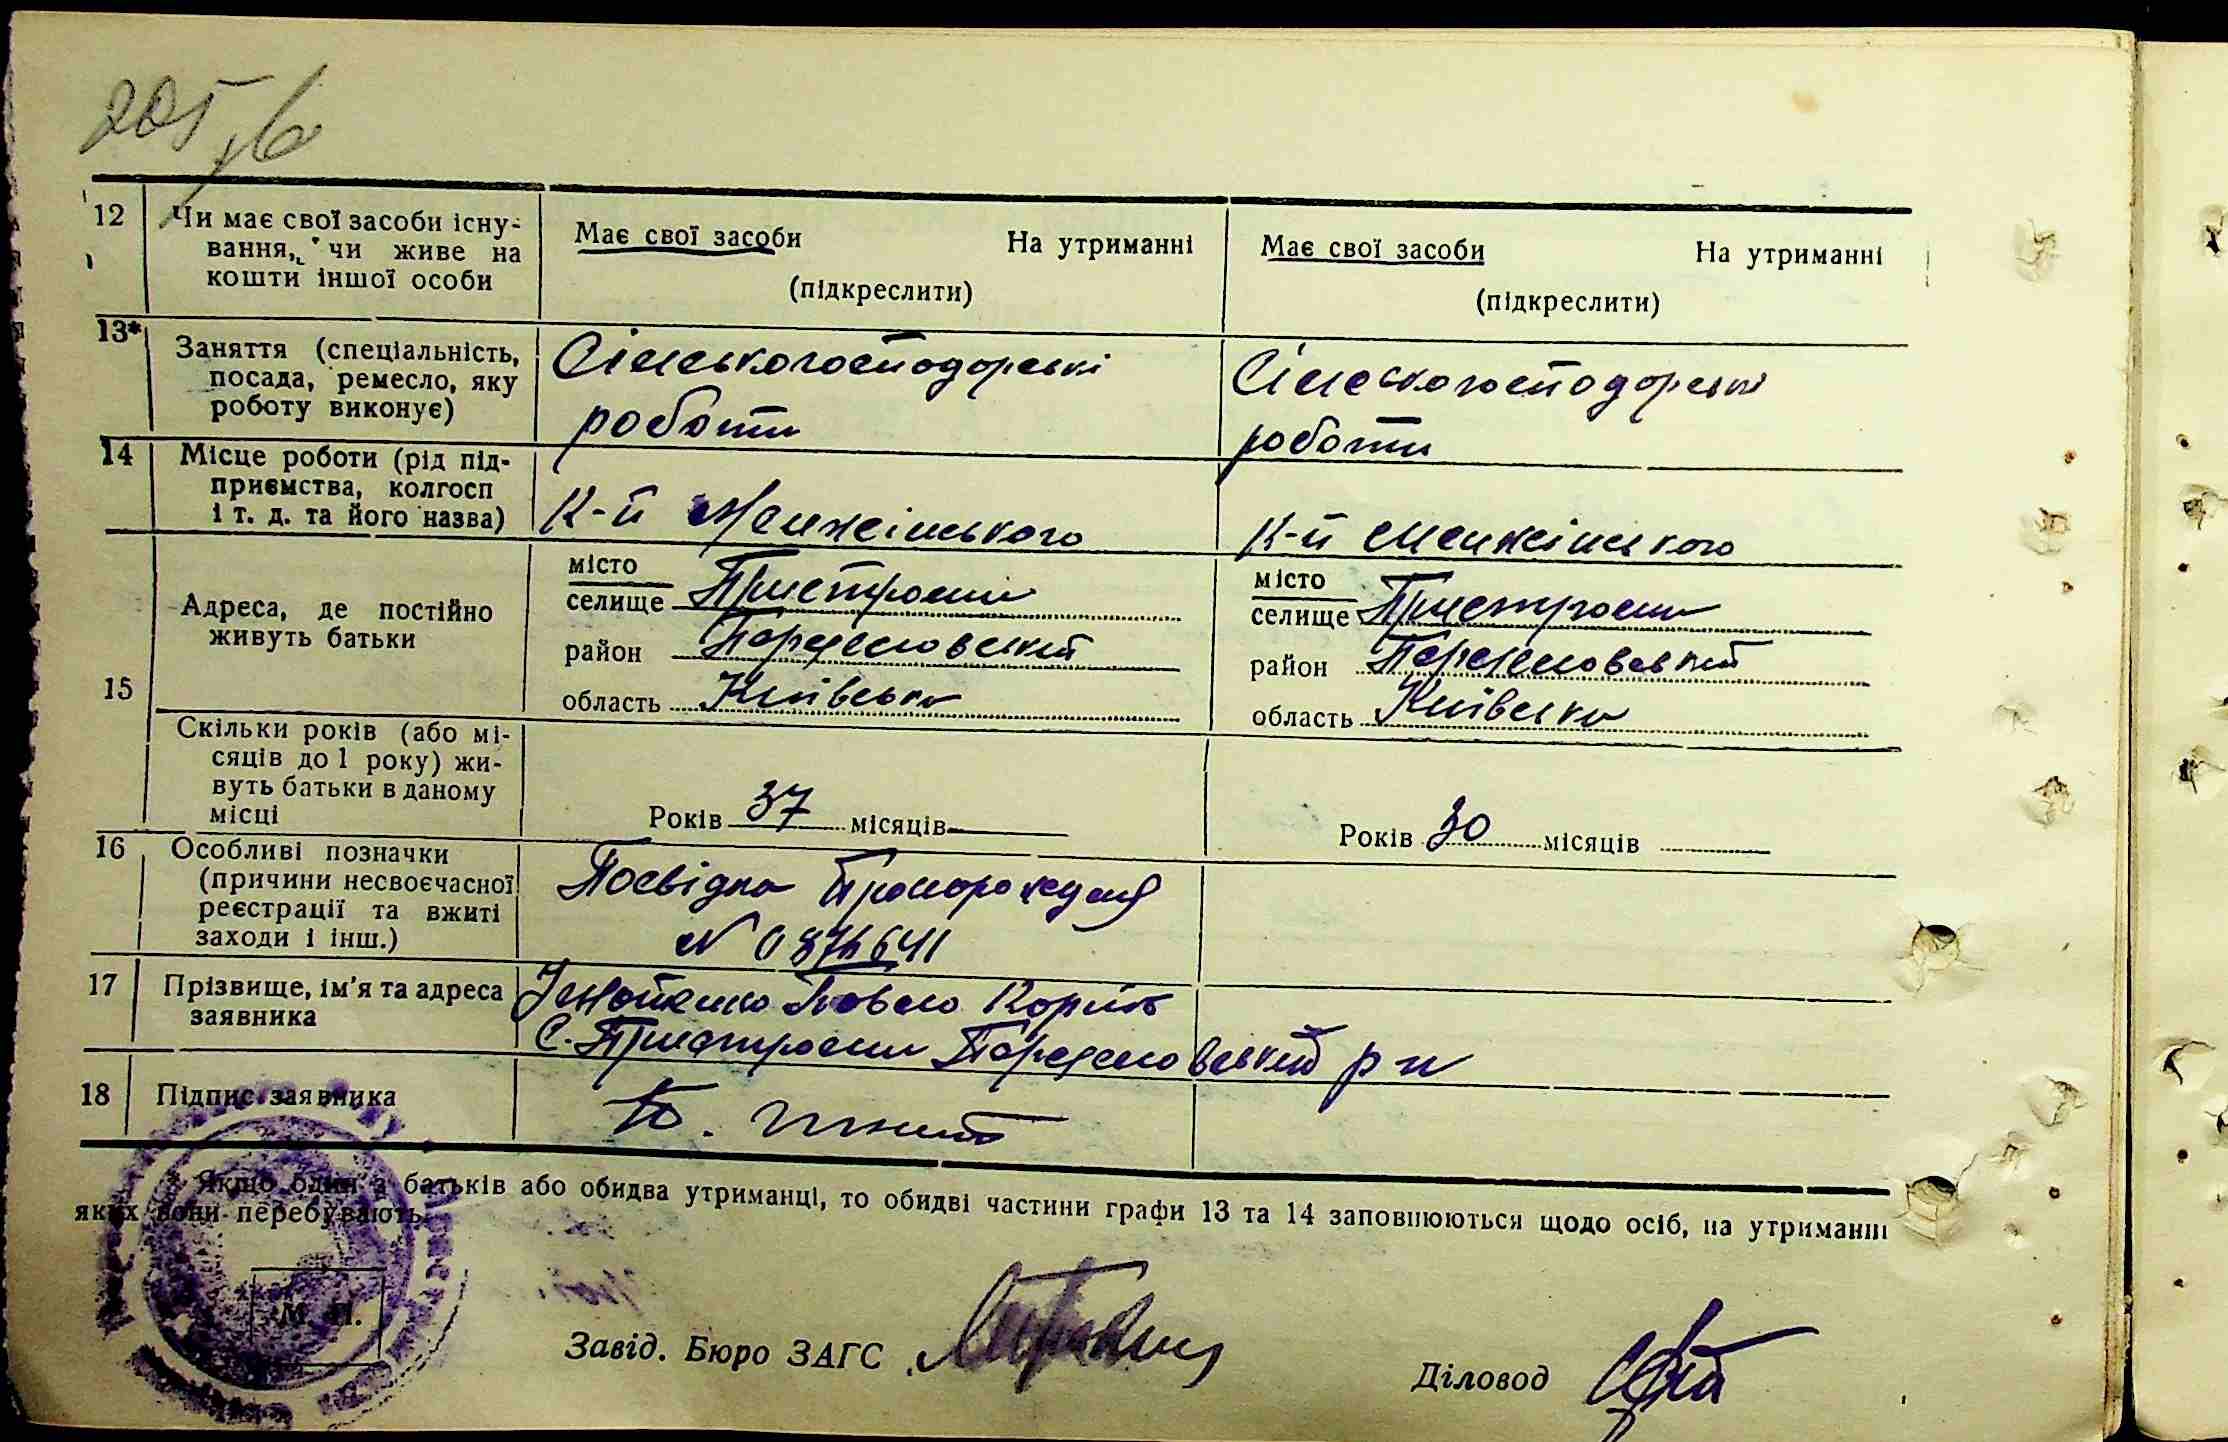 205
12 Чи має свої засоби існу-
вання, чи живе на
кошти іншої особи
Має свої засоби На утриманні
(підкреслити)
Має свої засоби На утриманні
(підкреслити)
13* Заняття (спеціальність,
посада, ремесло, яку
роботу виконує)
Сільськогосподорські
роботи
Сілескогосподорські
роботи
14 Місце роботи (рід під-
приємства, колгосп
і т. д. та його назва)
К-п Менжінського
К-п Менжінського
15 Адреса, де постійно
живуть батьки
місто
селище Пристроми
район
область Київська
місто
селище Пристроми
район
область Київська
Скільки років (або мі-
сяців до 1 року) жи-
вуть батьки в даному
місці
Років 37 місяців
Років 30 місяців
16 Особливі позначки
(причини несвоєчасної
реєстрації та вжиті
заходи і інш.)
Посвідка
N
17 Прізвище, ім'я та адреса
заявника
Павло
С. Пристроми р н
18 Підпис заявника
Якщо один з батьків або обидва утриманці, то обидві частини графи 13 та 14 заповнюються щодо осіб, на утриманні
яких вони перебувають.
М. П.
Завід. Бюро ЗАГС
Діловод